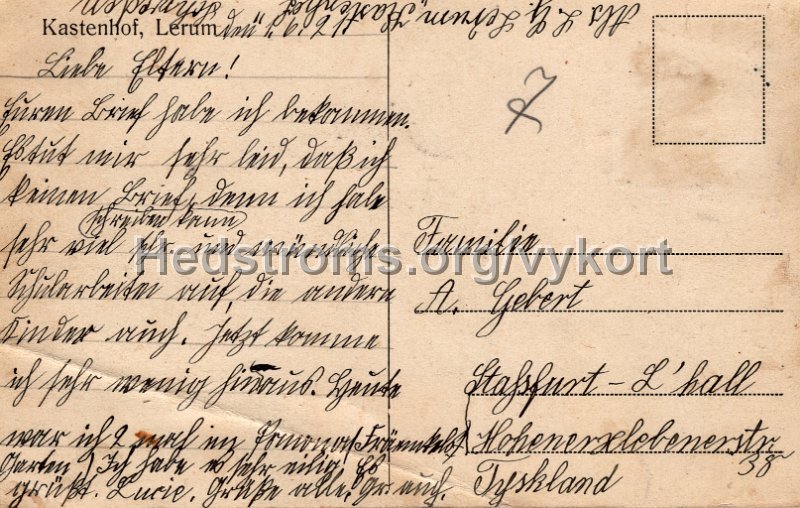 Kastenhof, Lerum, den 1.6.21
Liebe Eltern!
Euren Brief habe ich bekommen.
Es tut mir sehr leid, daß ich
keinen Brief, denn ich habe
schreiben kann
sehr viel und mündliche
Schularbeiten auf, die andere
Kinder auch. Jetzt komme
ich sehr wenig hinaus. Heute
war ich 2 mal im Pomona
Garten) Ich habe es sehr eilig. Es
grüßt. Lucie. Grüße alle. Gr. auch.
Familie
A. Gebert
Stassfurt - L'hall
Hohenerxlebenerstr
38
Tyskland
Hedstroms.org/vykort